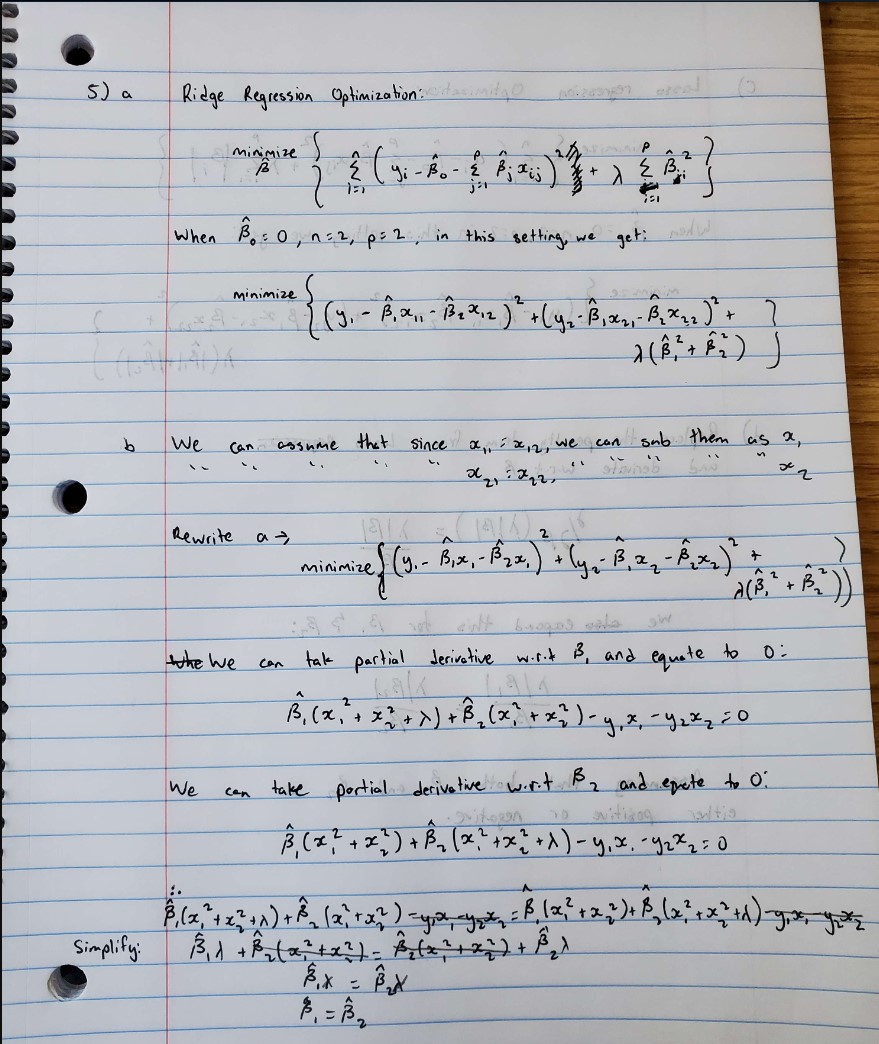 5) a Ridge Regression Optimization:
minimize β̂ { Σ_{i=1}^{n} ( y_i - β̂_0 - Σ_{j=1}^{p} β̂_j x_ij )² + λ Σ_{i=1}^{p} β̂_i² }
When β̂_0 = 0, n=2, p=2, in this setting, we get:
minimize { (y_1 - β̂_1 x_11 - β̂_2 x_12)² + (y_2 - β̂_1 x_21 - β̂_2 x_22)² +
λ(β̂_1² + β̂_2²) }
b We can assume that since x_11 = x_12, we can sub them as x_1
" " " " " x_21 = x_22, " " " " " x_2
Rewrite a →
minimize { (y_1 - β̂_1 x_1 - β̂_2 x_1)² + (y_2 - β̂_1 x_2 - β̂_2 x_2)² +
λ(β̂_1² + β̂_2²) }
Whe We can tak partial derivative w.r.t β_1 and equate to 0:
β̂_1 (x_1² + x_2² + λ) + β̂_2 (x_1² + x_2²) - y_1 x_1 - y_2 x_2 = 0
We can take partial derivative w.r.t β_2 and eqate to 0:
β̂_1 (x_1² + x_2²) + β̂_2 (x_1² + x_2² + λ) - y_1 x_1 - y_2 x_2 = 0
∴
β̂_1 (x_1² + x_2² + λ) + β̂_2 (x_1² + x_2²) - y_1 x_1 - y_2 x_2 = β̂_1 (x_1² + x_2²) + β̂_2 (x_1² + x_2² + λ) - y_1 x_1 - y_2 x_2
Simplify: β̂_1 λ + β̂_2 (x_1² + x_2²) = β̂_2 (x_1² + x_2²) + β̂_2 λ
β̂_1 λ = β̂_2 λ
β̂_1 = β̂_2